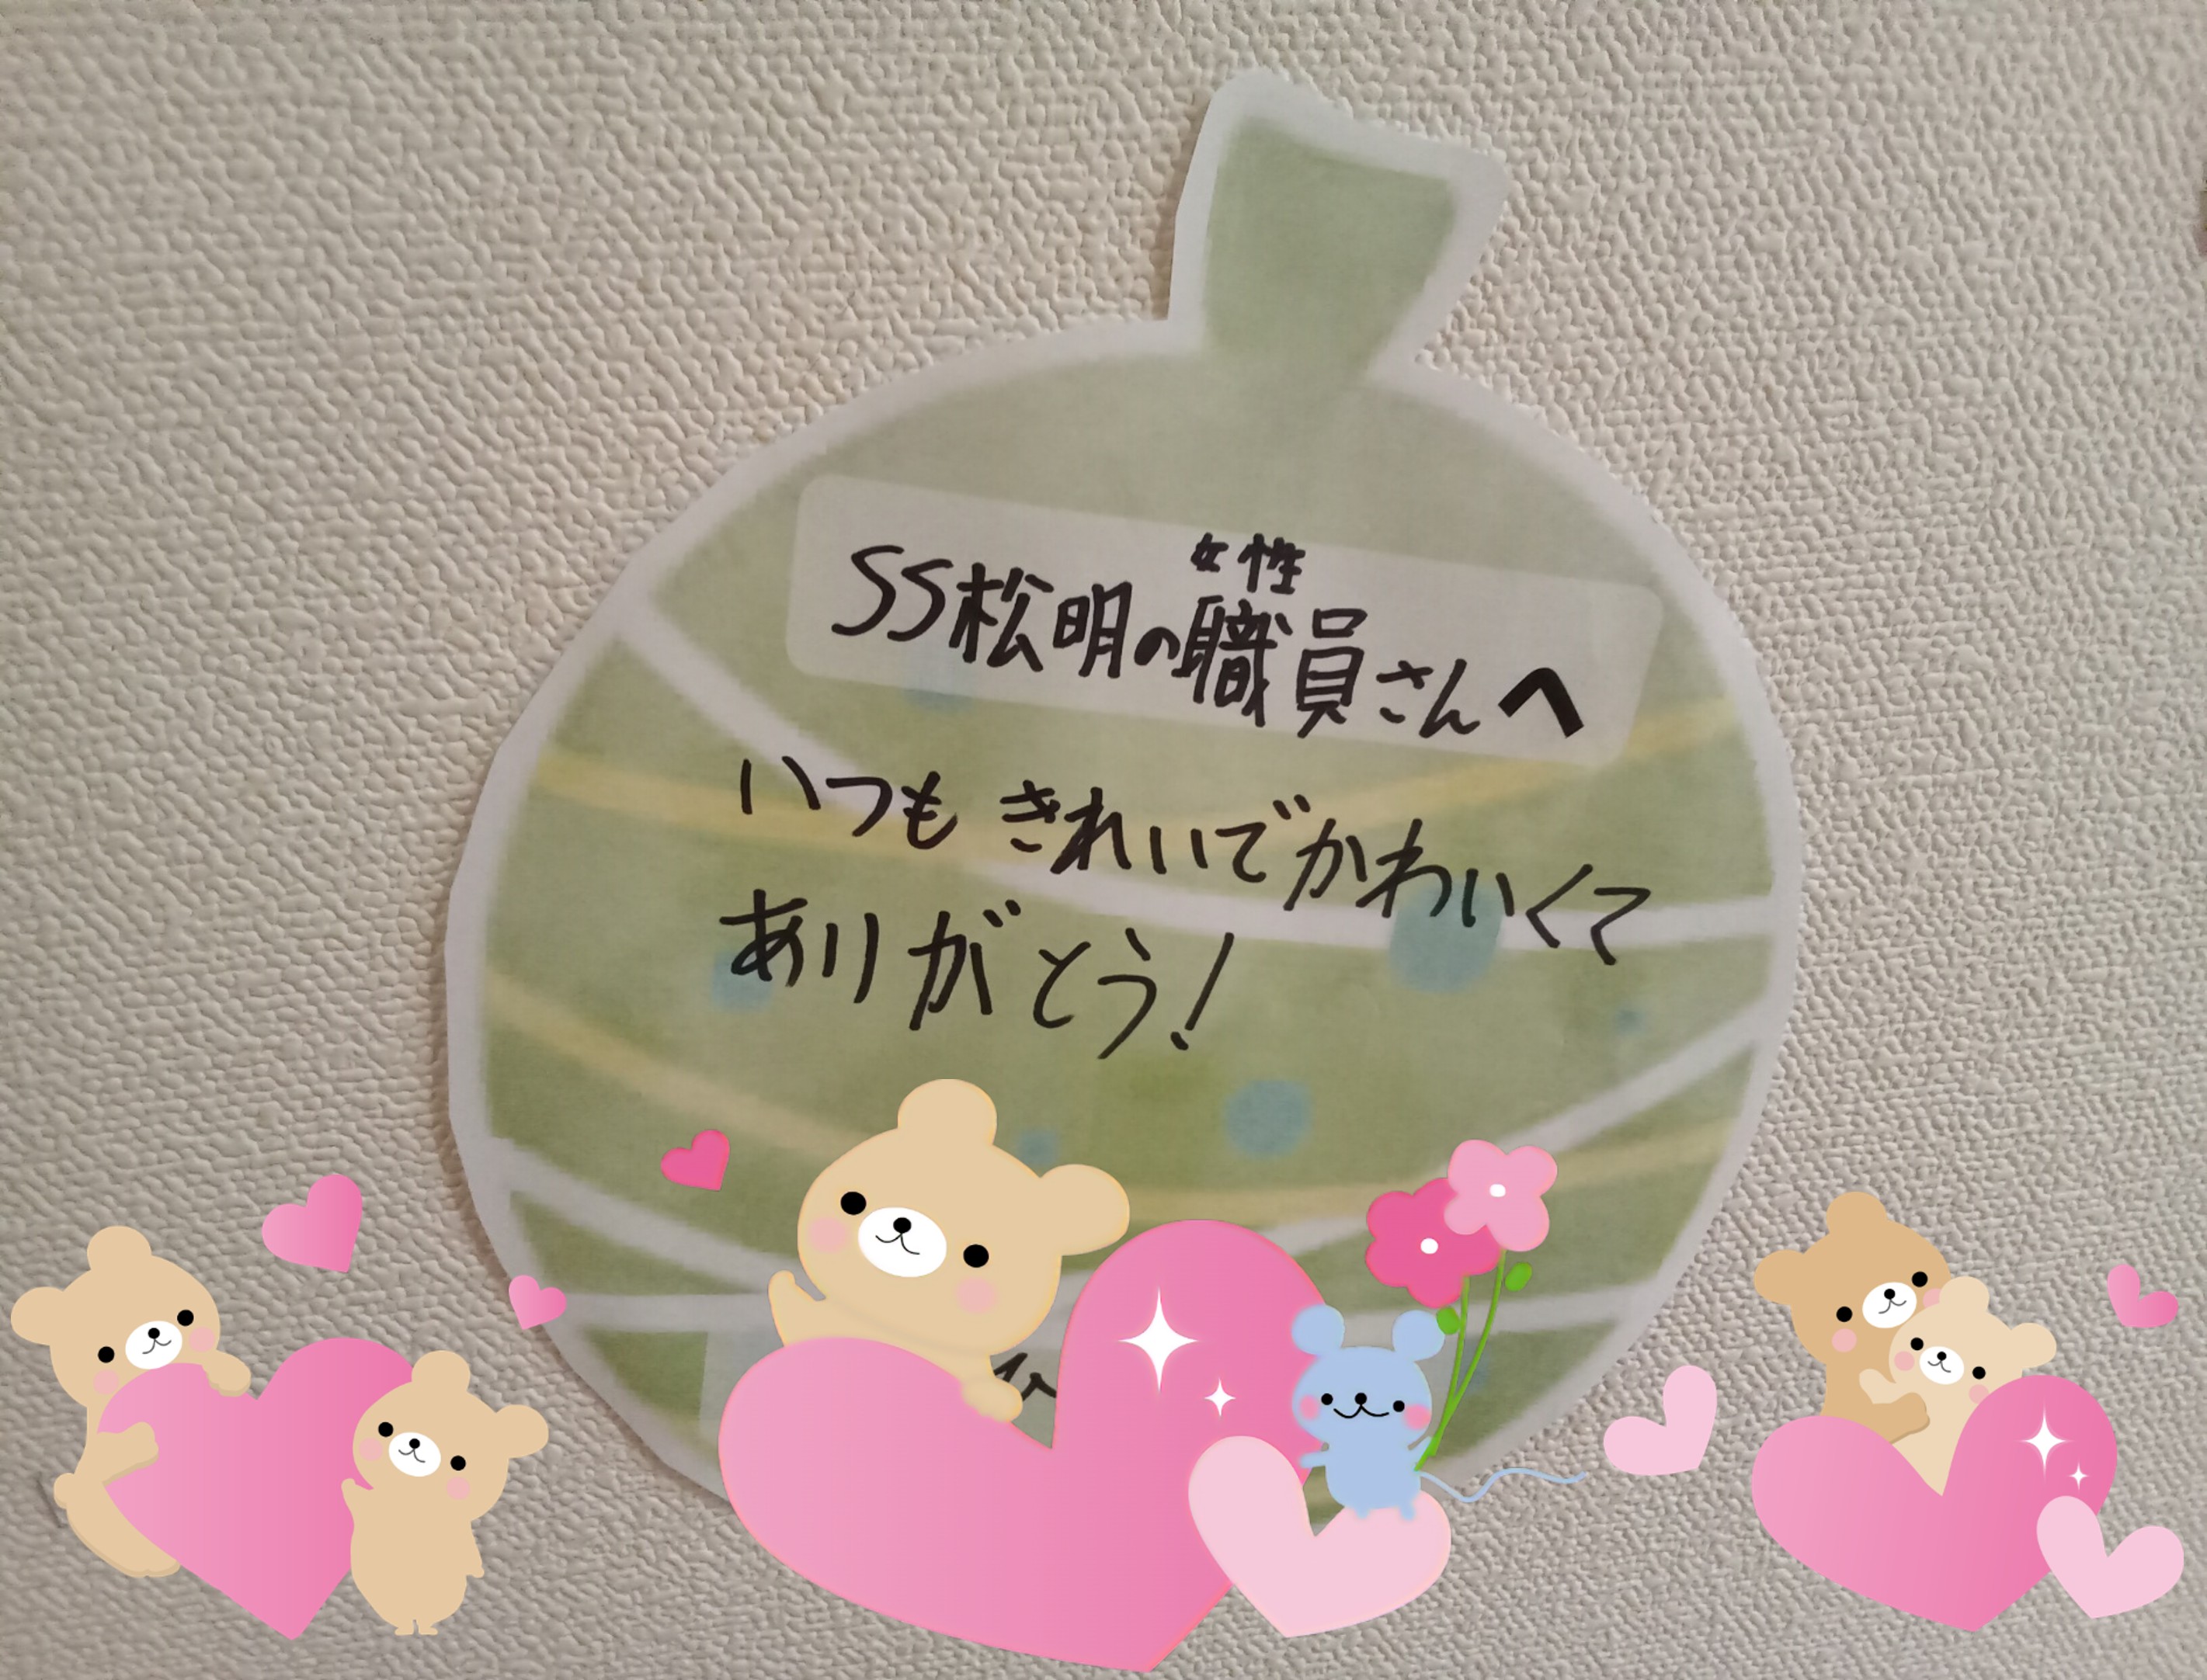 女性
SS松明の職員さんへ
いつも きれいでかわいくて
ありがとう!